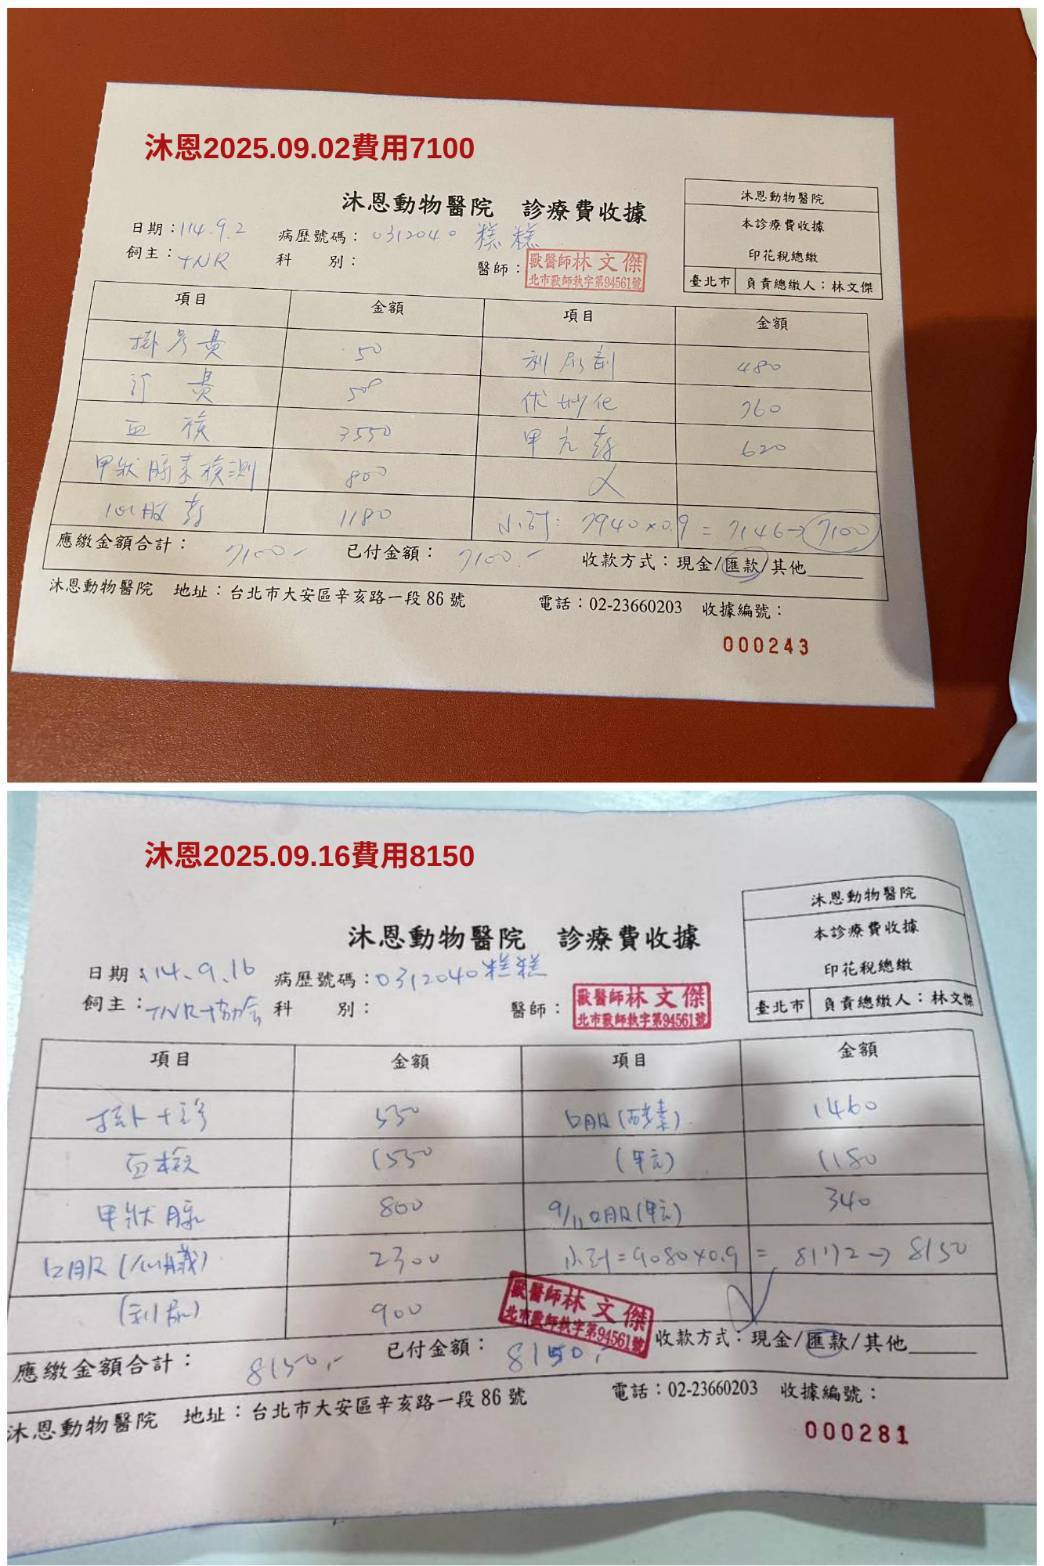 沐恩2025.09.02費用7100
沐恩動物醫院 診療費收據
沐恩動物醫院
本診療費收據
印花稅總繳
臺北市 負責總繳人：林文傑
日期：114.9.2 病歷號碼：0312040 糕糕
飼主：TNR 科 別： 醫師：
獸醫師林文傑
北市獸師執字第94561號
項目 金額 項目 金額
掛号費 50 利尿劑 480
診費 500 伏妙化 760
血檢 3550 甲亢藥 620
甲狀腺素檢測 800
心臟藥 1180 小計：7940×0.9=7146→7100
應繳金額合計：7100.- 已付金額：7100.- 收款方式：現金/匯款/其他
沐恩動物醫院 地址：台北市大安區辛亥路一段86號 電話：02-23660203 收據編號：
000243
沐恩2025.09.16費用8150
沐恩動物醫院 診療費收據
沐恩動物醫院
本診療費收據
印花稅總繳
臺北市 負責總繳人：林文傑
日期：114.9.16 病歷號碼：0312040糕糕
飼主：TNR協会 科 別： 醫師：
獸醫師林文傑
北市獸師執字第94561號
項目 金額 項目 金額
掛+診 550 口服(酵素) 1460
血檢 1550 (甲亢) 1180
甲狀腺 800 9/11口服(甲亢) 340
口服(心臟) 2300 小計=9080×0.9 = 8172→8150
(利尿) 900
獸醫師林文傑
北市獸師執字第94561號
應繳金額合計：8150.- 已付金額：8150.- 收款方式：現金/匯款/其他
沐恩動物醫院 地址：台北市大安區辛亥路一段86號 電話：02-23660203 收據編號：
000281